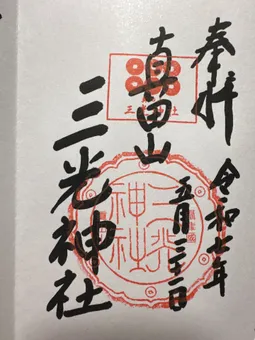 奉拝
令和七年
五月三十一日
真田山
三光神社
三光神社
三光神社